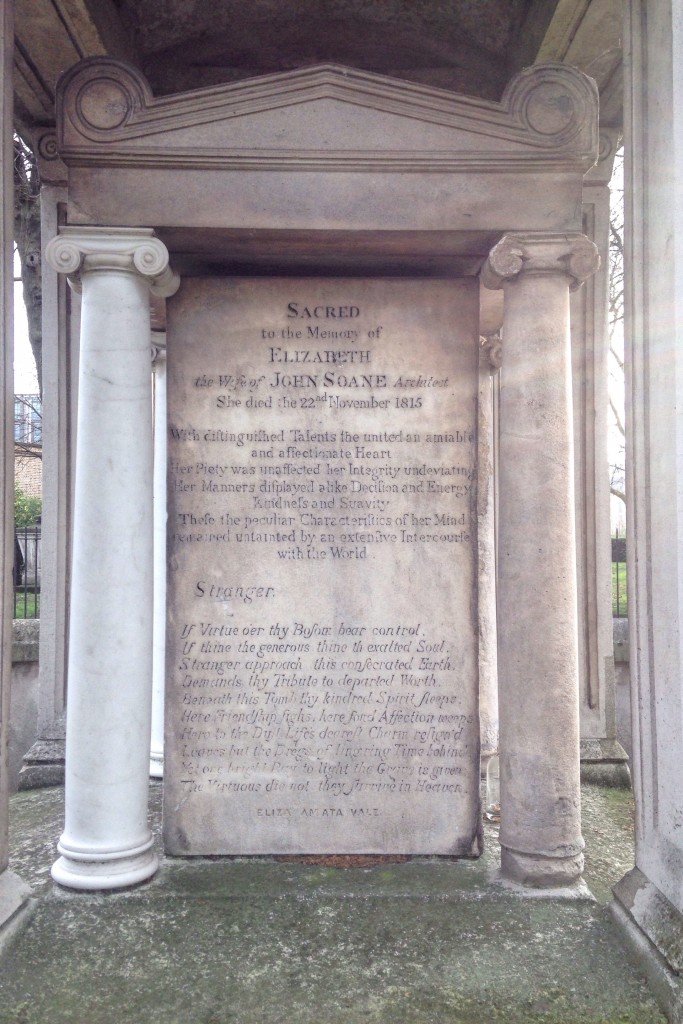 SACRED
to the Memory of
ELIZABETH
the Wife of JOHN SOANE Architect
She died the 22nd November 1815
With diſtinguiſhed Talents ſhe united an amiable
and affectionate Heart
Her Piety was unaffected her Integrity undeviating
Her Manners diſplayed alike Deciſion and Energy
Kindneſs and Suavity
Theſe the peculiar Characteriſtics of her Mind
remained untainted by an extenſive Intercourſe
with the World
Stranger,
If Virtue o'er thy Boſom bear control,
If thine the generous thine th exalted Soul,
Stranger approach this conſecrated Earth,
Demands thy Tribute to departed Worth.
Beneath this Tomb thy kindred Spirit ſleeps,
Here Friendſhip ſighs, here fond Affection weeps
Here to the Duſt Life's deareſt Charm reſign'd
Leaves but the Dregs of lingering Time behind
Yet one bright Ray to light the Grave is given
The Virtuous die not they ſurvive in Heaven
ELIZA AMATA VALE